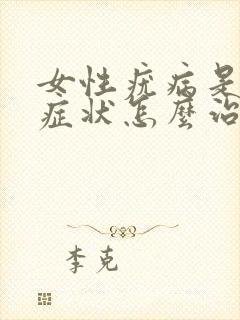 女性疣病是
症状怎麼治
李克